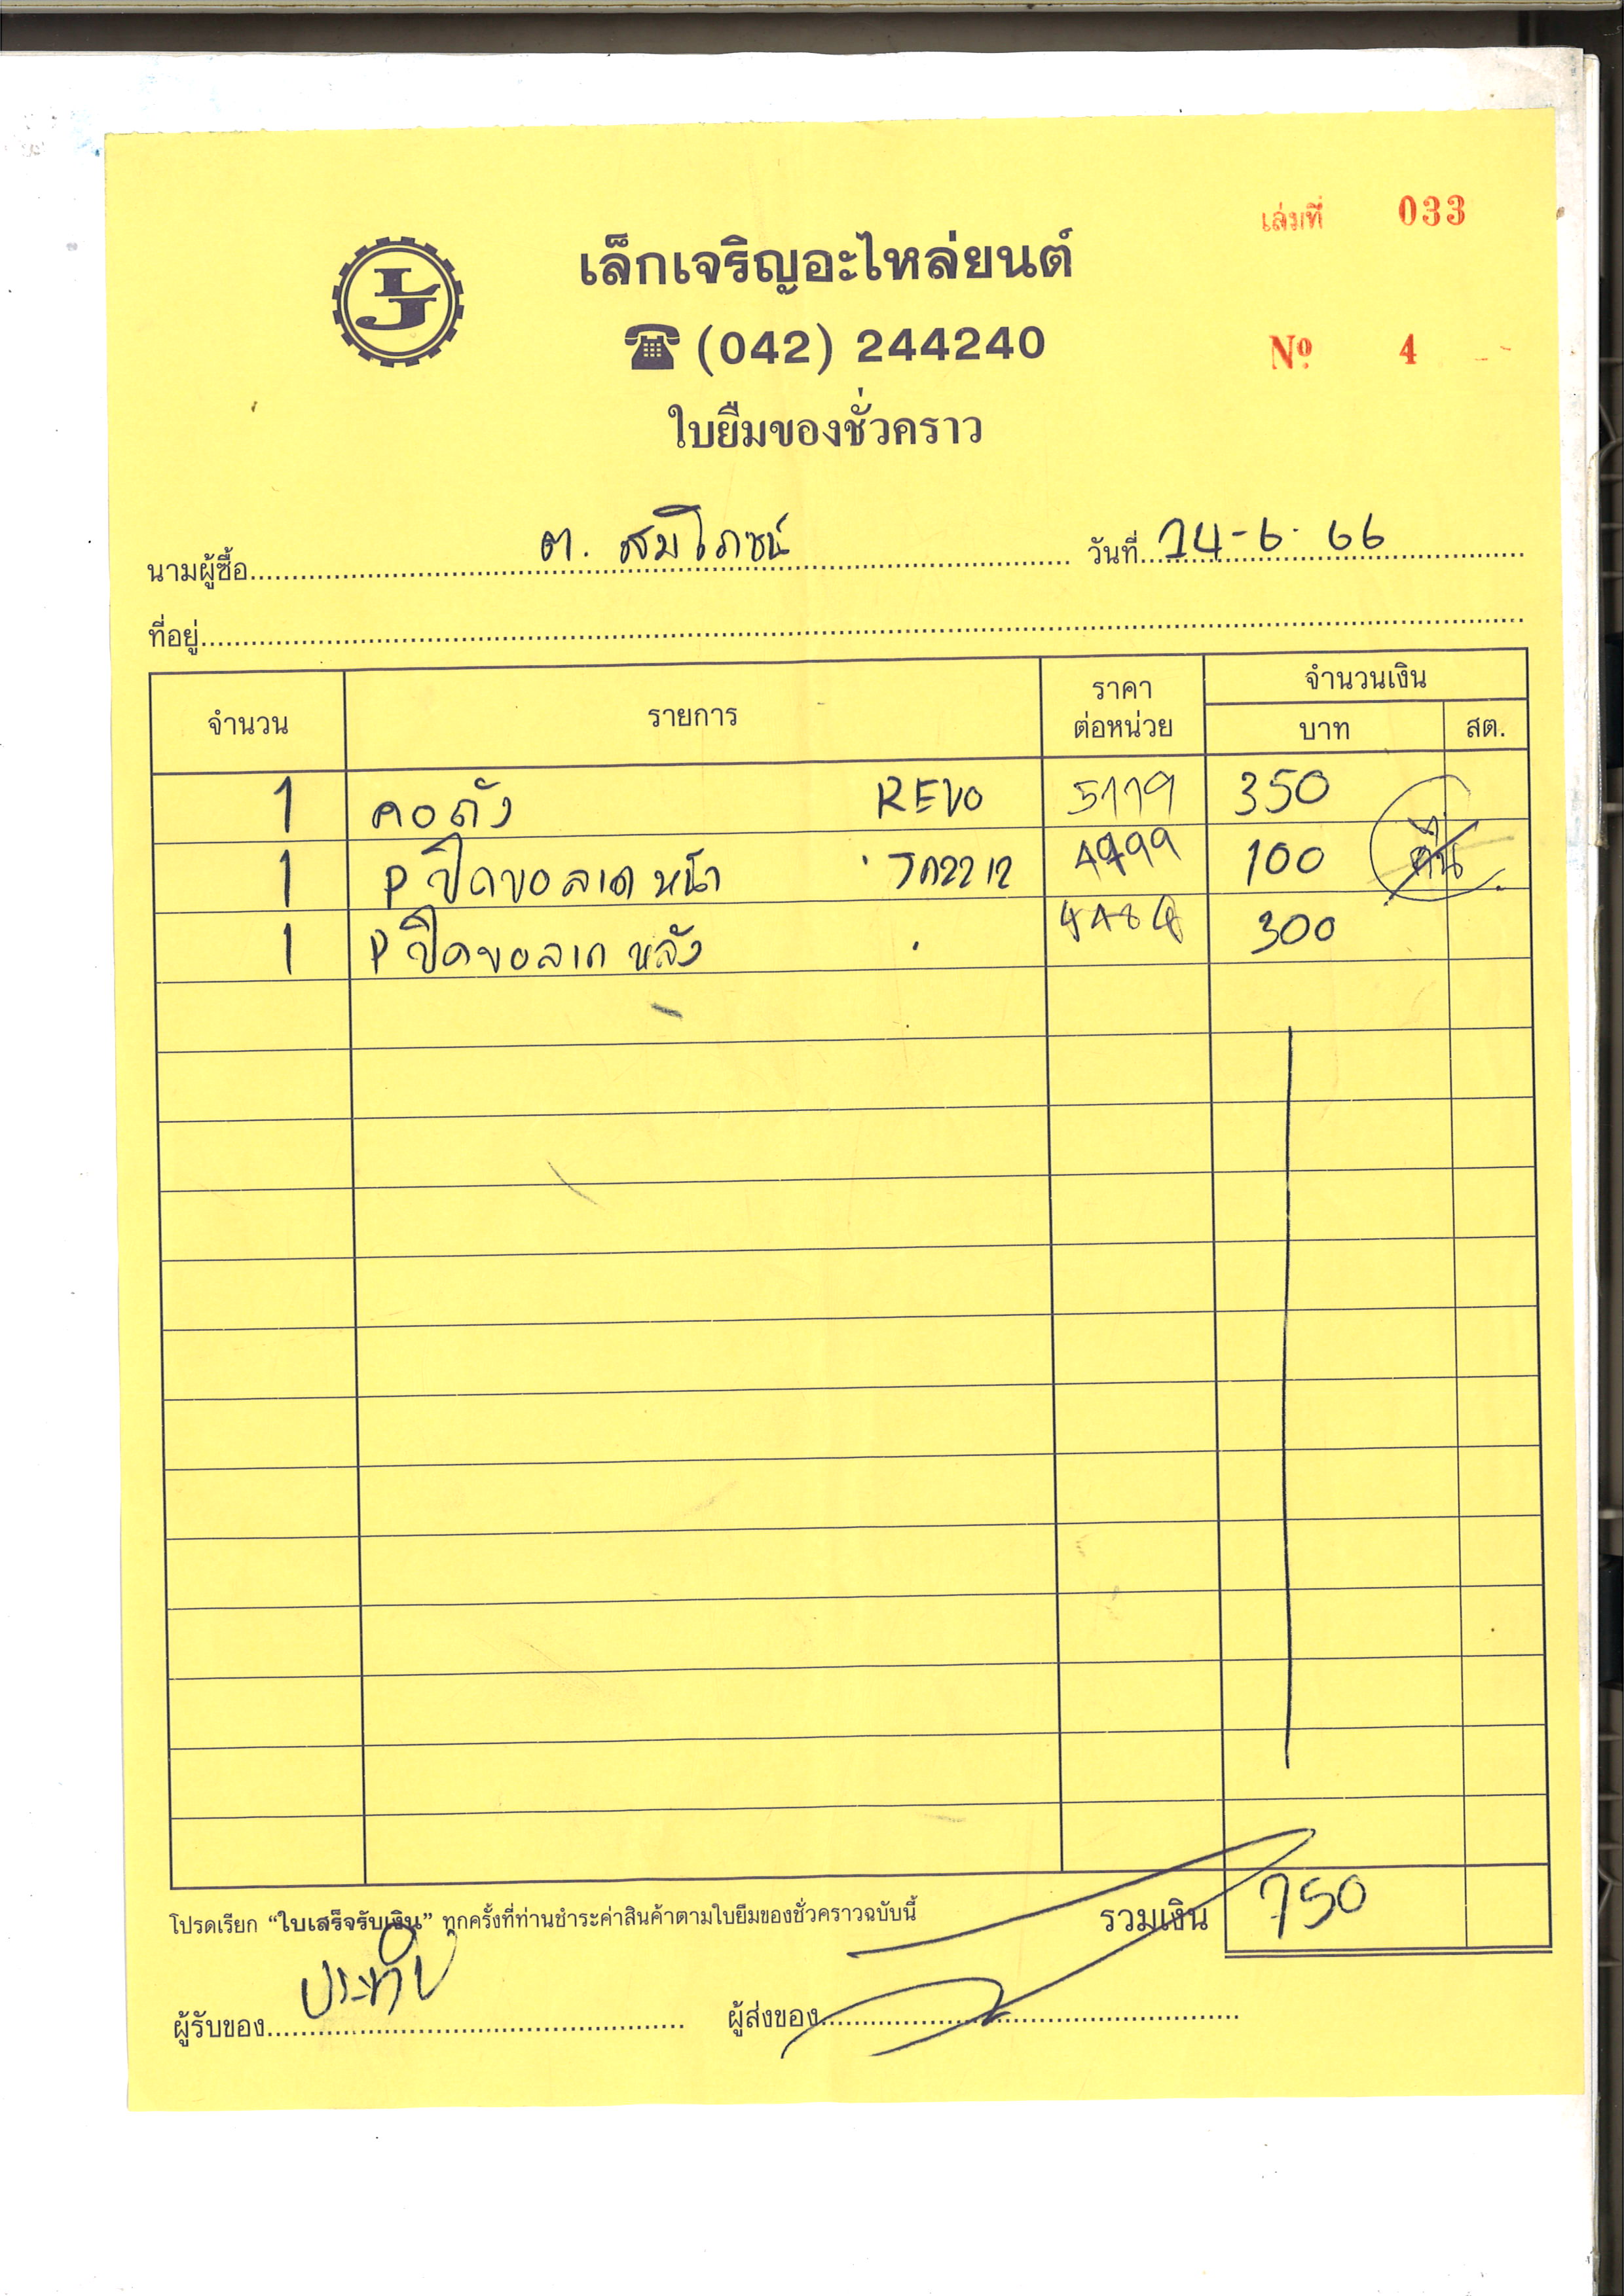 เล่มที่ 033
LJ
เล็กเจริญอะไหล่ยนต์
(042) 244240
Nº 4
ใบยืมของชั่วคราว
นามผู้ซื้อ ต. สมโภชน์ วันที่ 14-6-66
ที่อยู่
จำนวน รายการ ราคาต่อหน่วย จำนวนเงิน
บาท สต.
1 คอถัง REVO 5119 350
1 P ปิดขอลาก หน้า 4799 100 คืน
1 P ปิดขอลาก หลัง 300
โปรดเรียก “ใบเสร็จรับเงิน” ทุกครั้งที่ท่านชำระค่าสินค้าตามใบยืมของชั่วคราวฉบับนี้ รวมเงิน 750
ผู้รับของ ประทีป ผู้ส่งของ